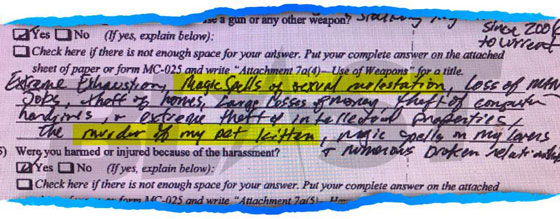 use a gun or any other weapon?
since 200
☑ Yes ☐ No (If yes, explain below):
to current
☐ Check here if there is not enough space for your answer. Put your complete answer on the attached
sheet of paper or form MC-025 and write "Attachment 7a(4)—Use of Weapons" for a title.
Extreme Exhaustion, Magic Spells of sexual molestation, Loss of
Jobs, theft of homes, Large Losses of money, theft of computer
hardrives, & extreme theft of Intellectual Properties,
the murder of my pet kitten, magic spells on my lovers
5) Were you harmed or injured because of the harassment?
& numerous broken
☑ Yes ☐ No (If yes, explain below):
☐ Check here if there is not enough space for your answer. Put your complete answer on the attached
or form MC-025 and write "Attachment 7a(5)—